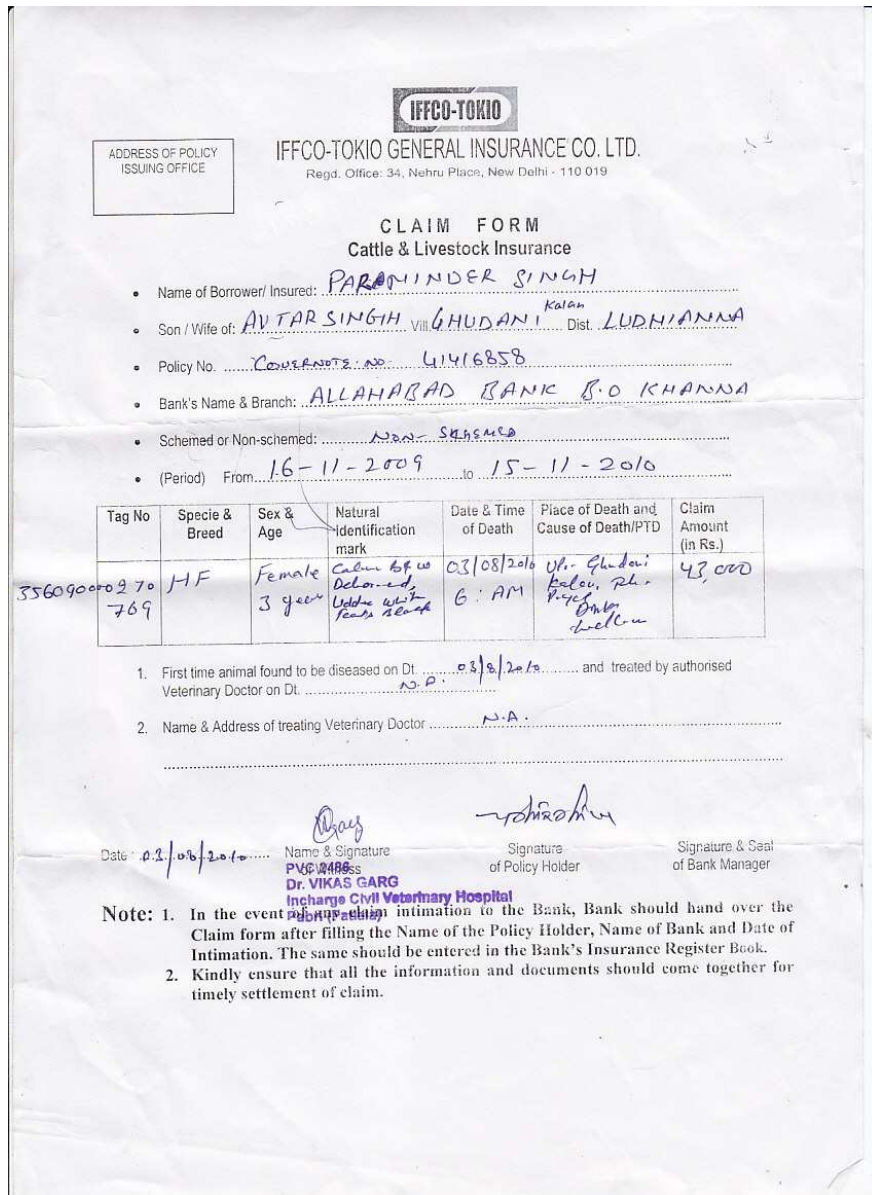 IFFCO-TOKIO
ADDRESS OF POLICY
ISSUING OFFICE
IFFCO-TOKIO GENERAL INSURANCE CO. LTD.
Regd. Office: 34, Nehru Place, New Delhi - 110 019
CLAIM FORM
Cattle & Livestock Insurance
Name of Borrower/ Insured: PARAMINDER SINGH
Son / Wife of: AVTAR SINGH Vill. GHUDANI Kalan Dist. LUDHIANNA
Policy No. COVERNOTE. NO. 41416858
Bank's Name & Branch: ALLAHABAD BANK B.O KHANNA
Schemed or Non-schemed: NON-
(Period) From 16-11-2009 to 15-11-2010
Tag No Specie & Breed Sex & Age Natural identification mark Date & Time of Death Place of Death and Cause of Death/PTD Claim Amount (in Rs.)
356090000270 HF Female 03/08/2010 Vill. Ghudani 43,000
769 3 year Dehorned, 6: AM Kalan,
Udder white
Teats Black
1. First time animal found to be diseased on Dt. 03/8/2010 and treated by authorised
Veterinary Doctor on Dt.
2. Name & Address of treating Veterinary Doctor N.A.
Date: 03/08/2010 Name & Signature Signature Signature & Seal
of Witness of Policy Holder of Bank Manager
PVC 2486
Dr. VIKAS GARG
Incharge Civil Veterinary Hospital
Note: 1. In the event of any claim intimation to the Bank, Bank should hand over the
Claim form after filling the Name of the Policy Holder, Name of Bank and Date of
Intimation. The same should be entered in the Bank's Insurance Register Book.
2. Kindly ensure that all the information and documents should come together for
timely settlement of claim.